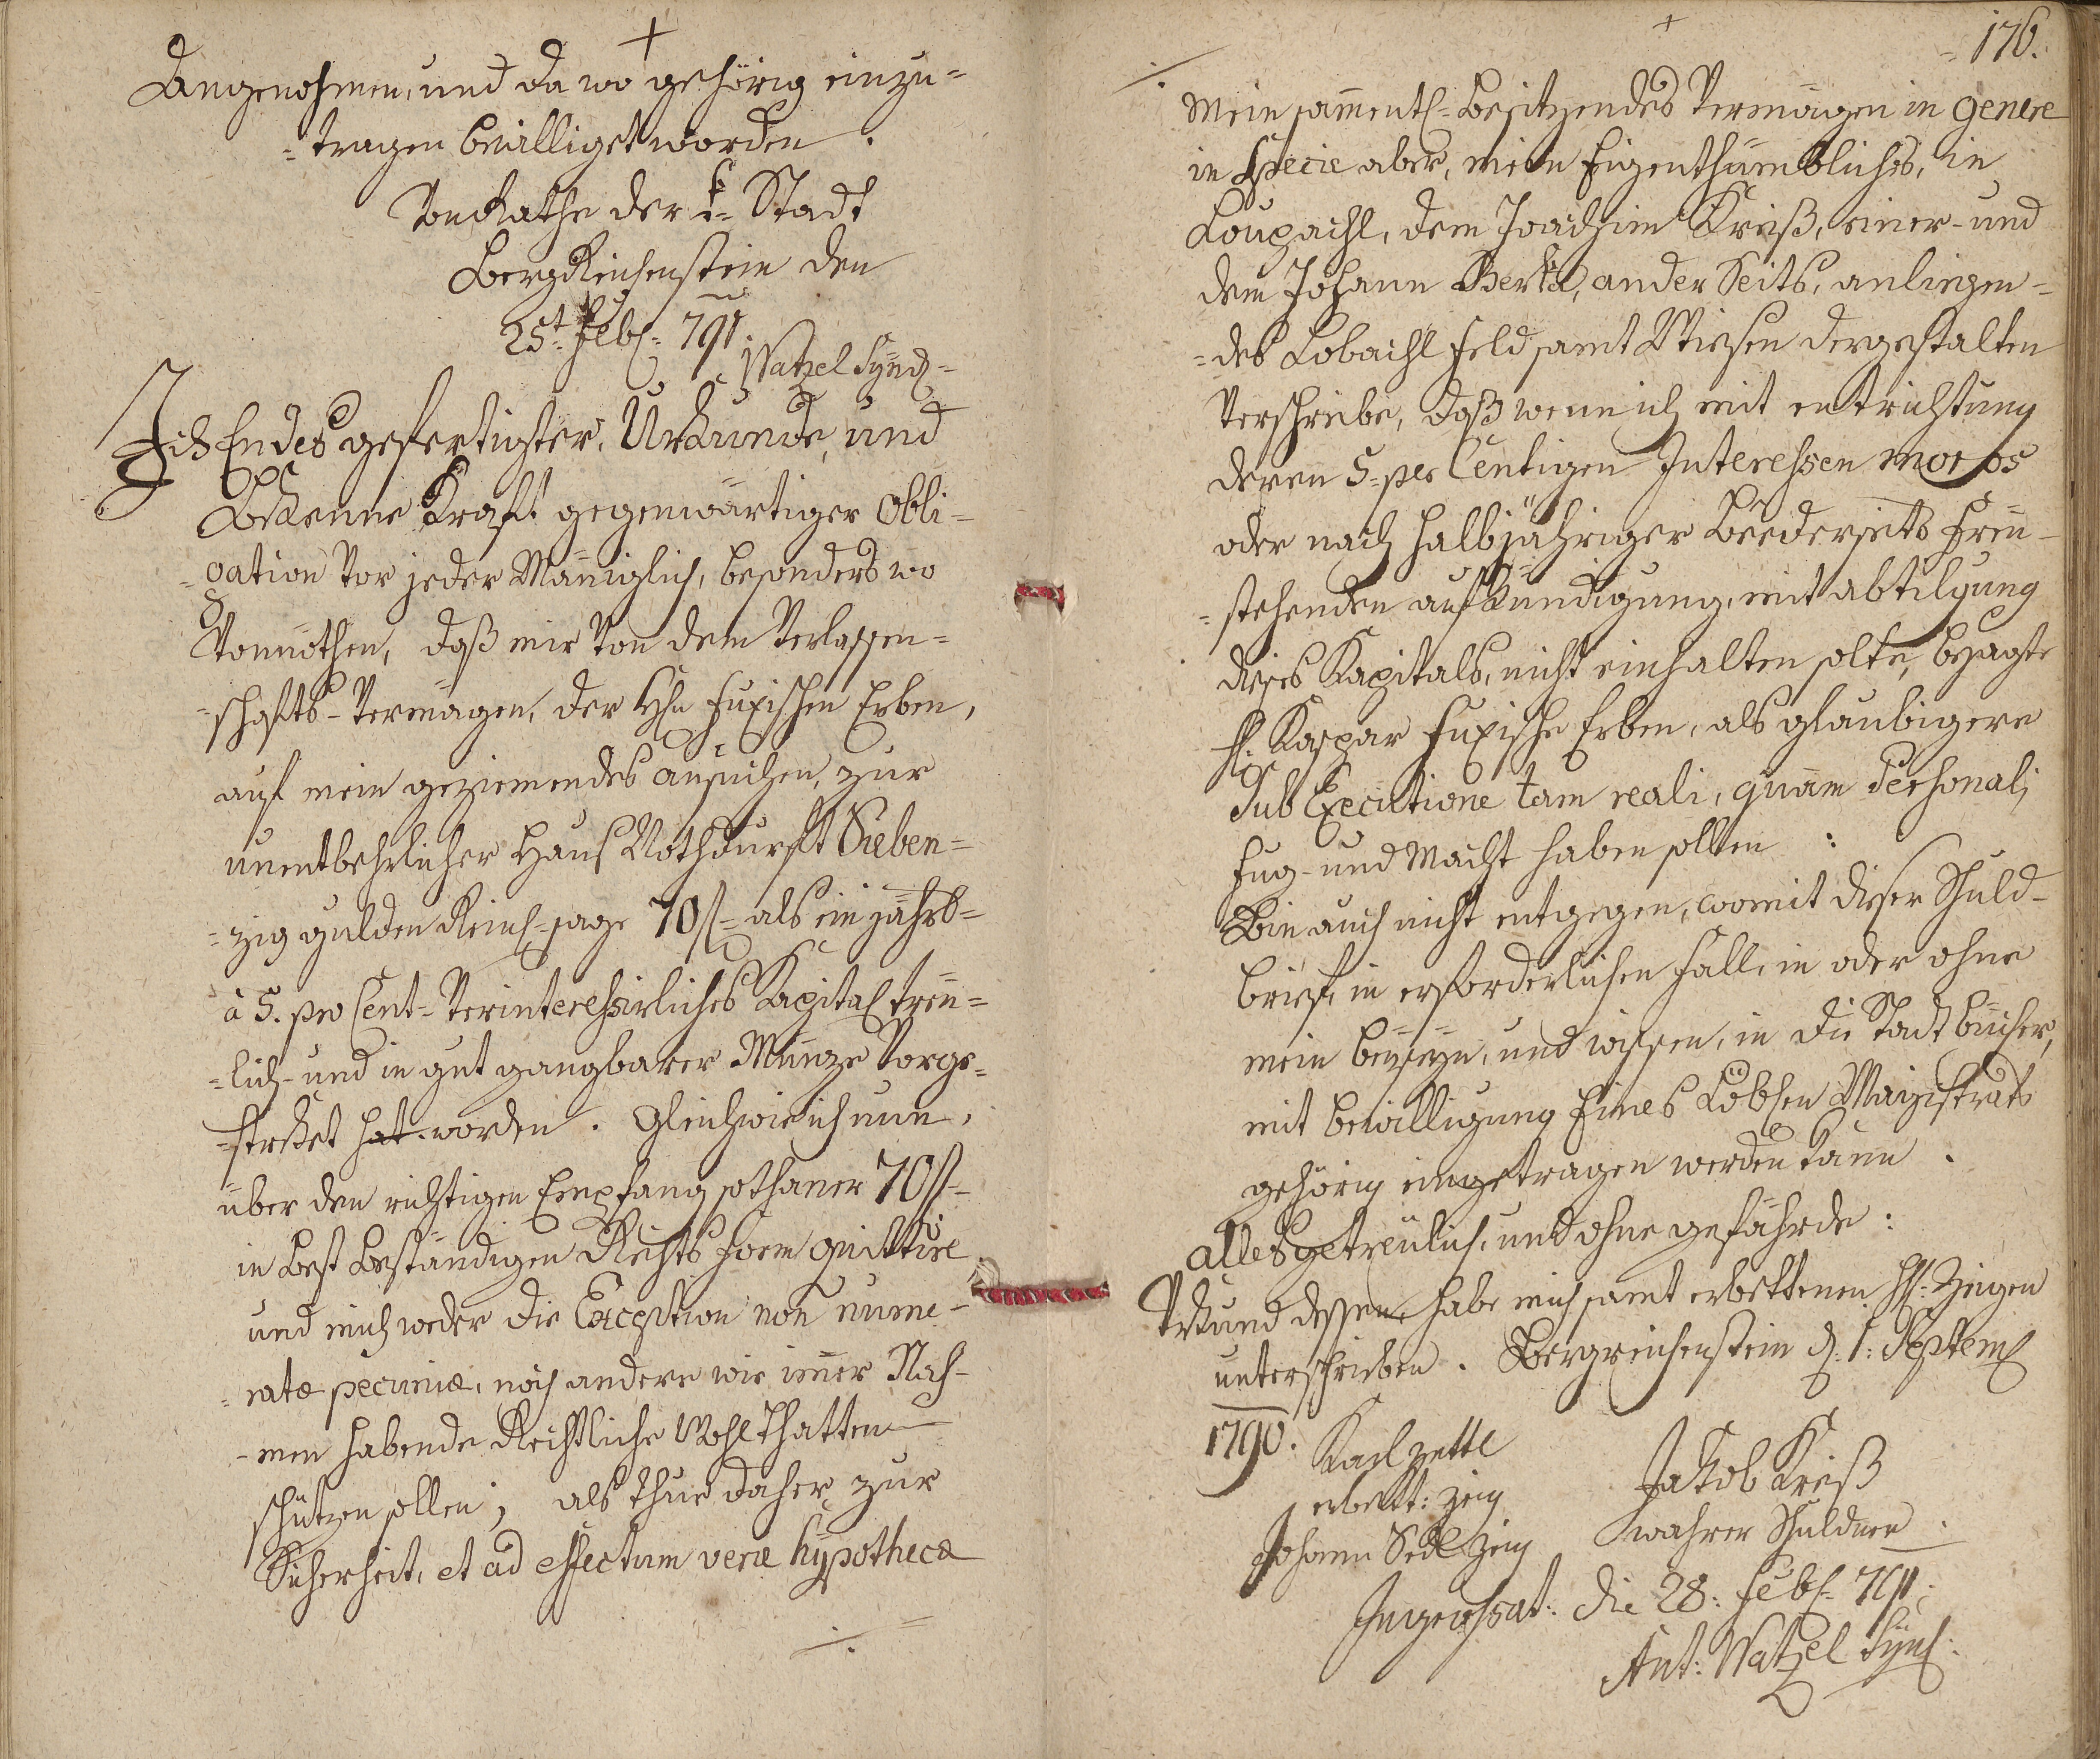 +
Angenohmen, und da wo gehörig einzu=
=tragen bewilliget worden.
Von Rathe der k= Stadt
BergReichenstein den
25t Feb= 791.
Watzel Synd=
Ich Endes gefertigter, Urkunde, und
Bekenne Kraft gegenwärtiger Obli=
=gation vor jeder Männiglich, besonders wo
Vonnöthen, daß mir von dem Verlassen=
=schafts-Vermögen, der Hhn Fuxischen Erben,
auf mein geziemendes ansuchen, zur
unentbehrlicher Haus Nothdurft Sieben=
=zig gulden Reinl=sage 70f= als ein jahrb=
à 5. pro Cent= Verinteressirliches Kapital treu=
=lich- und in gut gangbarer Münze Vorge=
=strket hat worden. Gleichwie ich nun,
über den richtigen Empfang sothaner 70f=
in Best Beständigen Rechts Form quittire
und mich weder die Exception non nume=
=ratæ pecuniæ, noch andere wie immer Nah=
=men habende Rechtliche Wohlthatten
schützen sollen; als thue daher zur
Sicherheit, et ad effectum veræ hypothecæ
./.
+
176.
./.
Mein sammentl= Besitzendes Vermögen in genere
in Specie aber, mein Eigenthümbliches, in
dem Joachim Kreiß, einer- und
dem Johann Berka, ander Seits, anliegen=
=des Lobachl Feld samt Wiesen dergestalten
Verschreibe, daß wenn ich mit entrichtung
deren 5=per Centigen Interessen moros
oder nach halbjähriger Beederseits Frey=
=stehenden aufkündigung, mit abtilgung
dieses Kapitals, nicht einhalten solte, besagte
H. Kaspar Fuxische Erben, als glaubigere
Sub Executione tam reali, quam Personali
Fug- und Macht haben sollen:
Bin auch nicht entgegen, womit dieser Schuld=
brief, in erforderlichen Fall, in oder ohne
mein beyseyn, und wissen, in die Stadtbücher,
mit bewilligung Eines Löblen Magistrats
gehörig eingetragen werden kann.
alles getreulich, und ohne gefährde:
Urkund dessen habe mich samt erbettenen HH: Zeigen
unterschrieben. Bergreichenstein d: 1: Septem
1790.
Karl Zettl
erbett: Zeig
Johann Sedl Zeig
Jakob Kreiß
wahrer Schuldner.
Ingrossat: die 28: Feb= 791:
Ant: Watzel Synd: